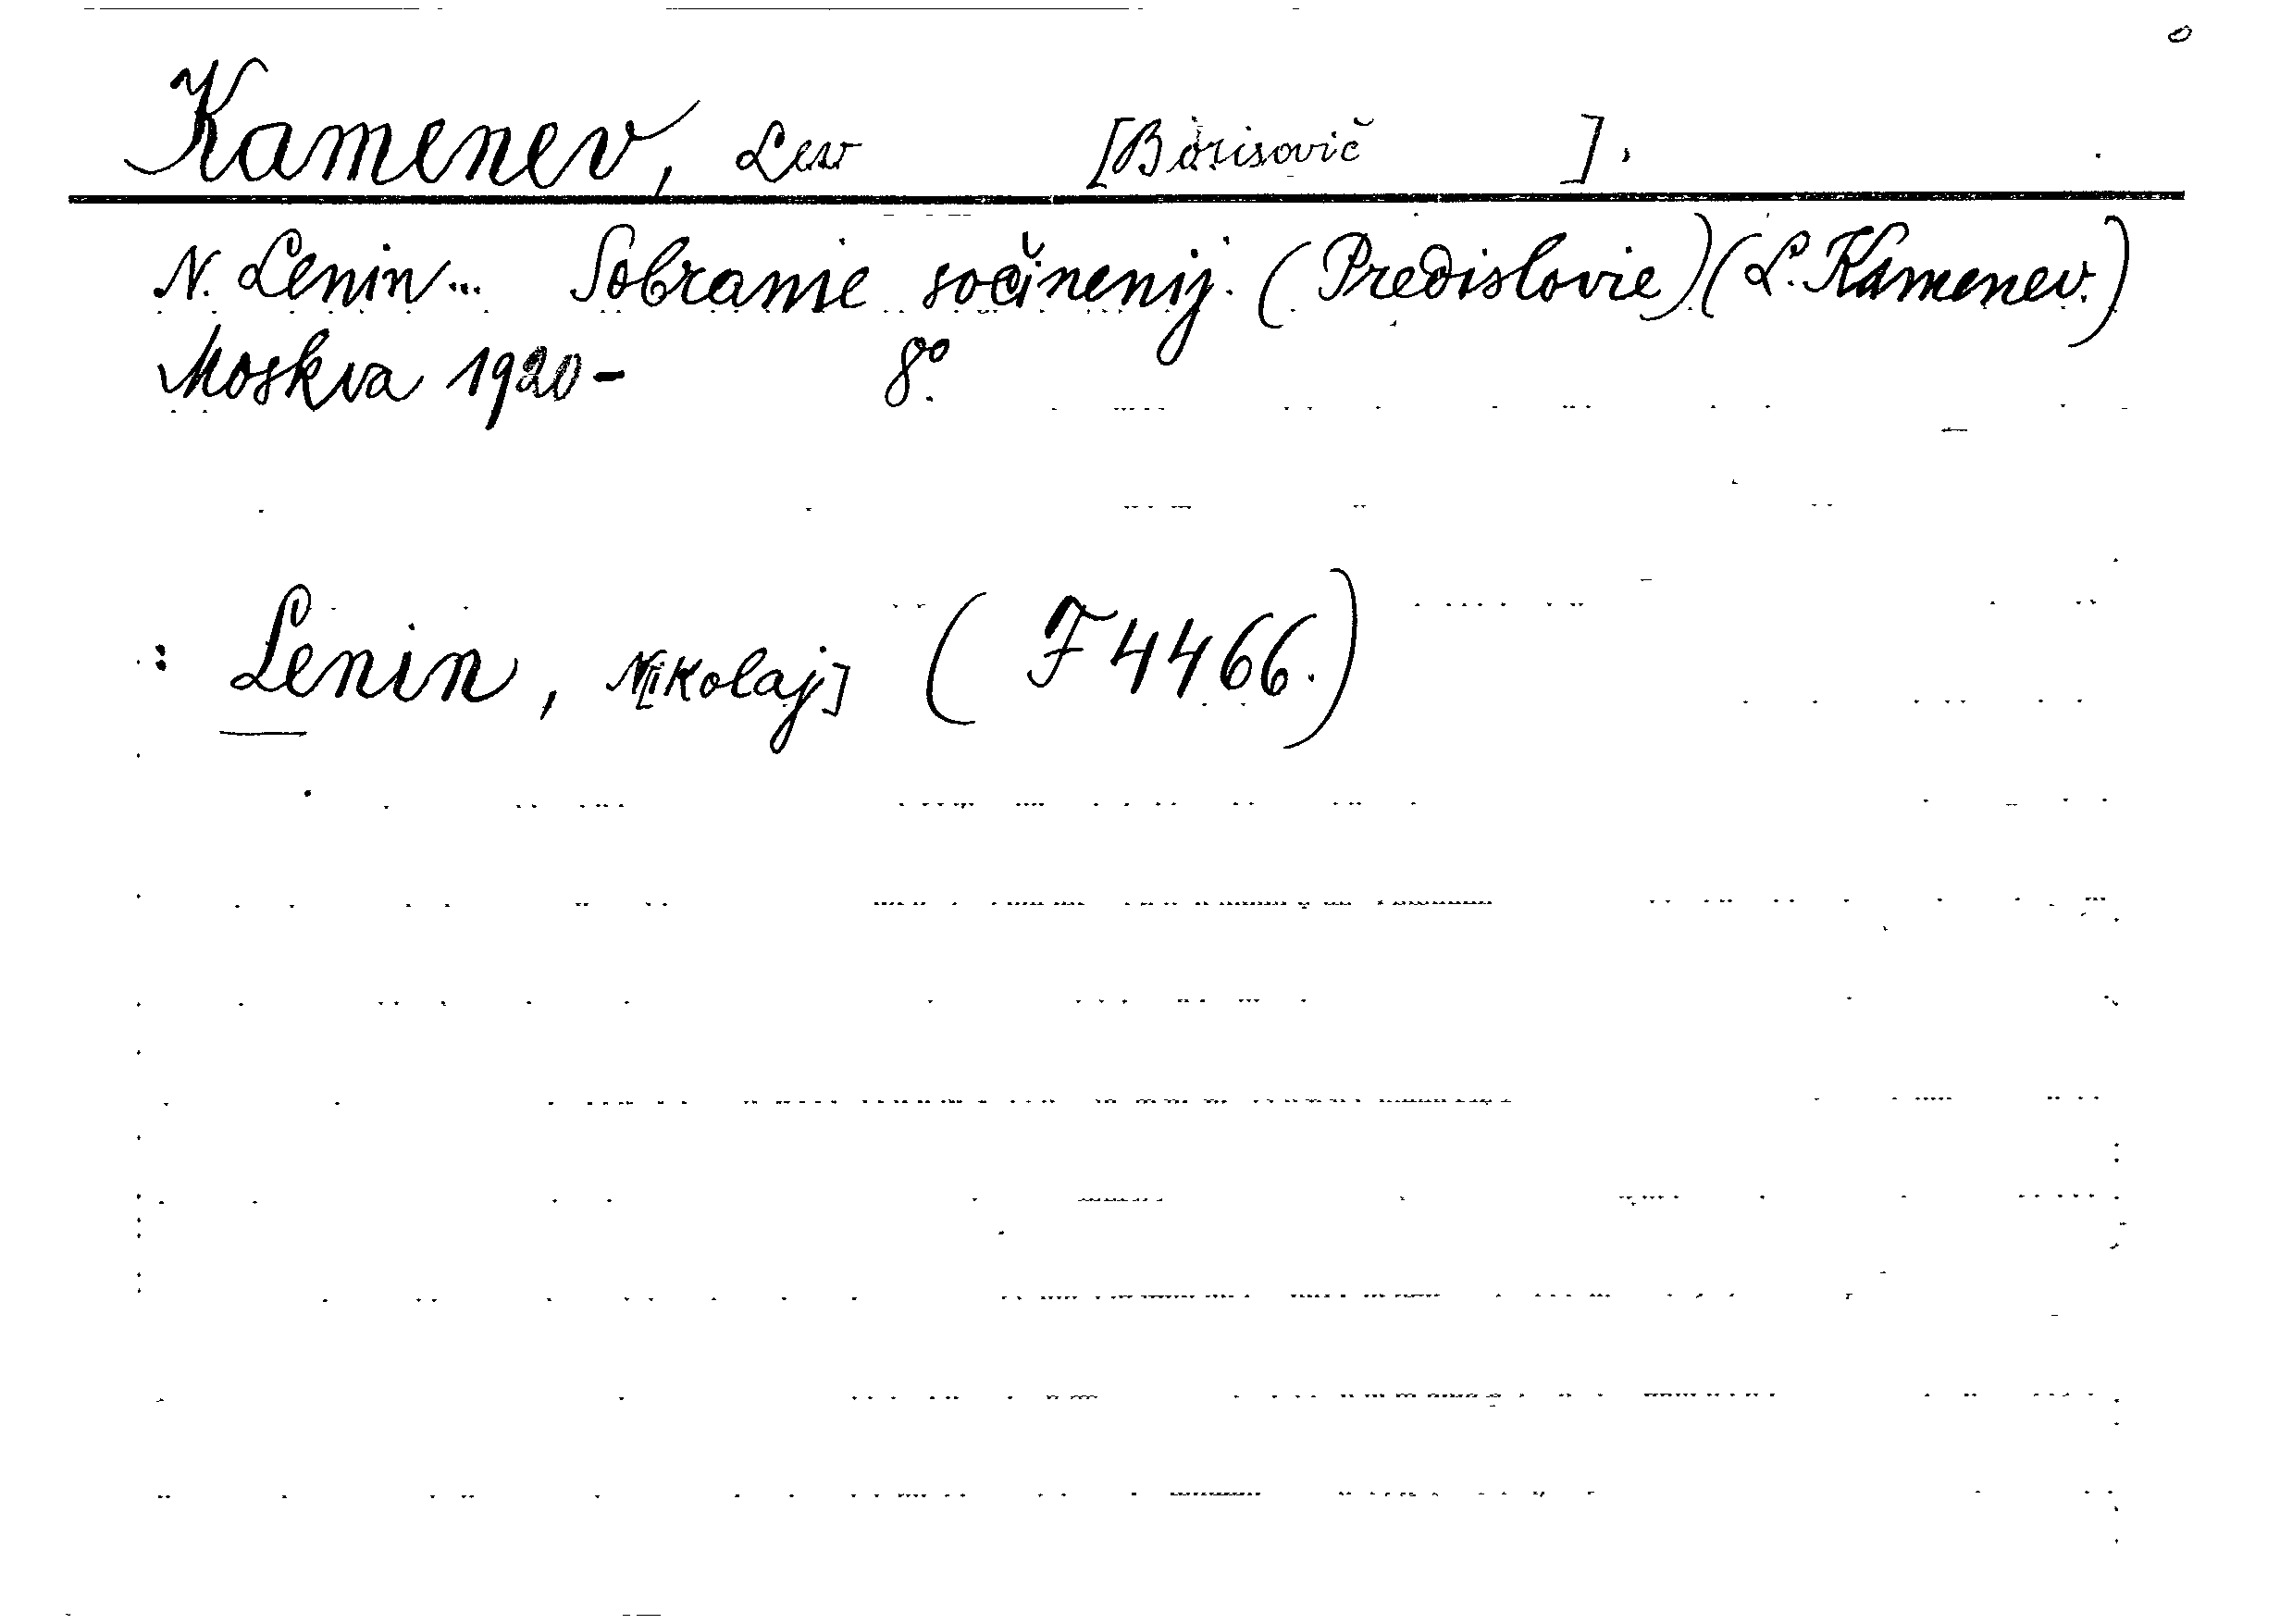 Kamenev, Lev [Borisovič].
N. Lenin... Sobranie sočinenij. (Predislovie) (L. Kamenev.)
Moskva 1920- 8°.
: Lenin, N[ikolaj] (F 4466.)